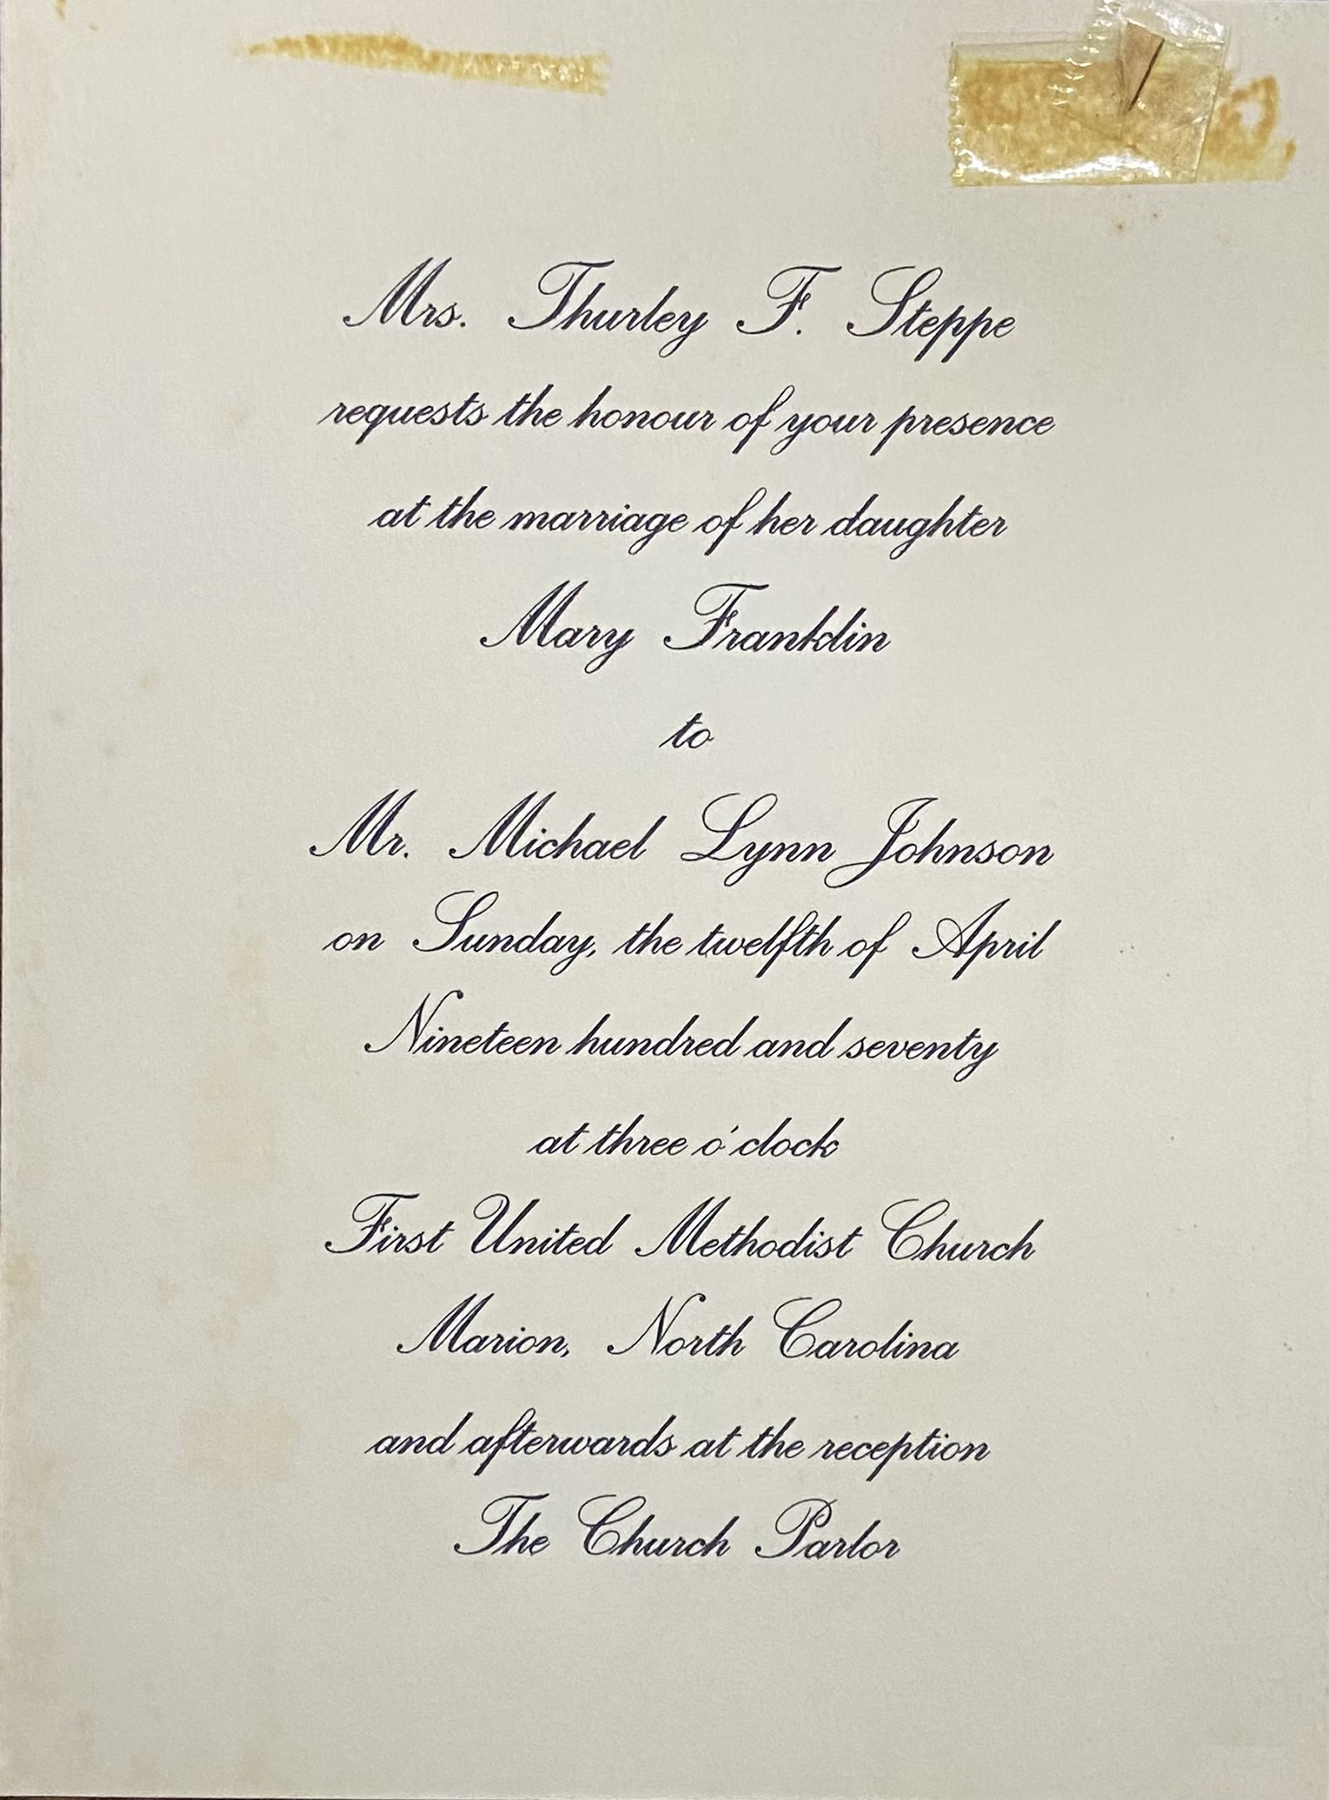 Mrs. Thurley F. Steppe
requests the honour of your presence
at the marriage of her daughter
Mary Franklin
to
Mr. Michael Lynn Johnson
on Sunday, the twelfth of April
Nineteen hundred and seventy
at three o'clock
First United Methodist Church
Marion, North Carolina
and afterwards at the reception
The Church Parlor